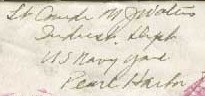 Lt Comdr M J Waters
Indust. Dept
US Navy Yard
Pearl Harbor